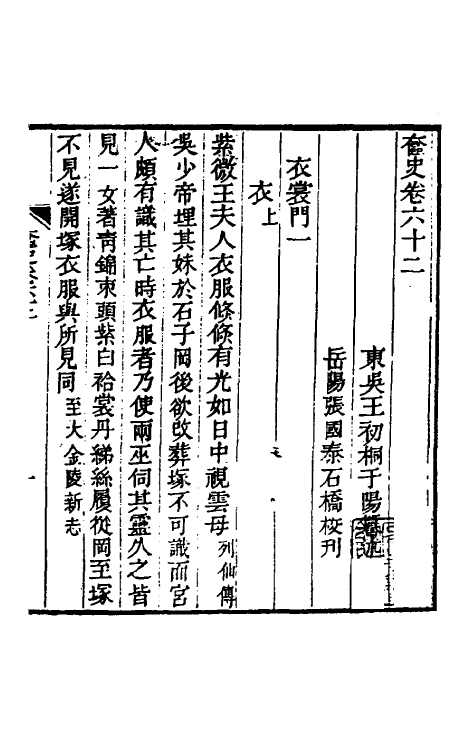 奩史卷六十二
東吳王初桐于陽纂述
岳陽張國泰石橋校刊
衣裳門一
衣上
紫微王夫人衣服條條有光如日中視雲母列仙傳
吳少帝埋其妹於石子岡後欲改葬塚不可識而宮
人頗有識其亡時衣服者乃使兩巫伺其靈久之皆
見一女著靑錦束頭紫白袷裳丹綈絲履從岡至塚
不見遂開塚衣服與所見同至大金陵新志